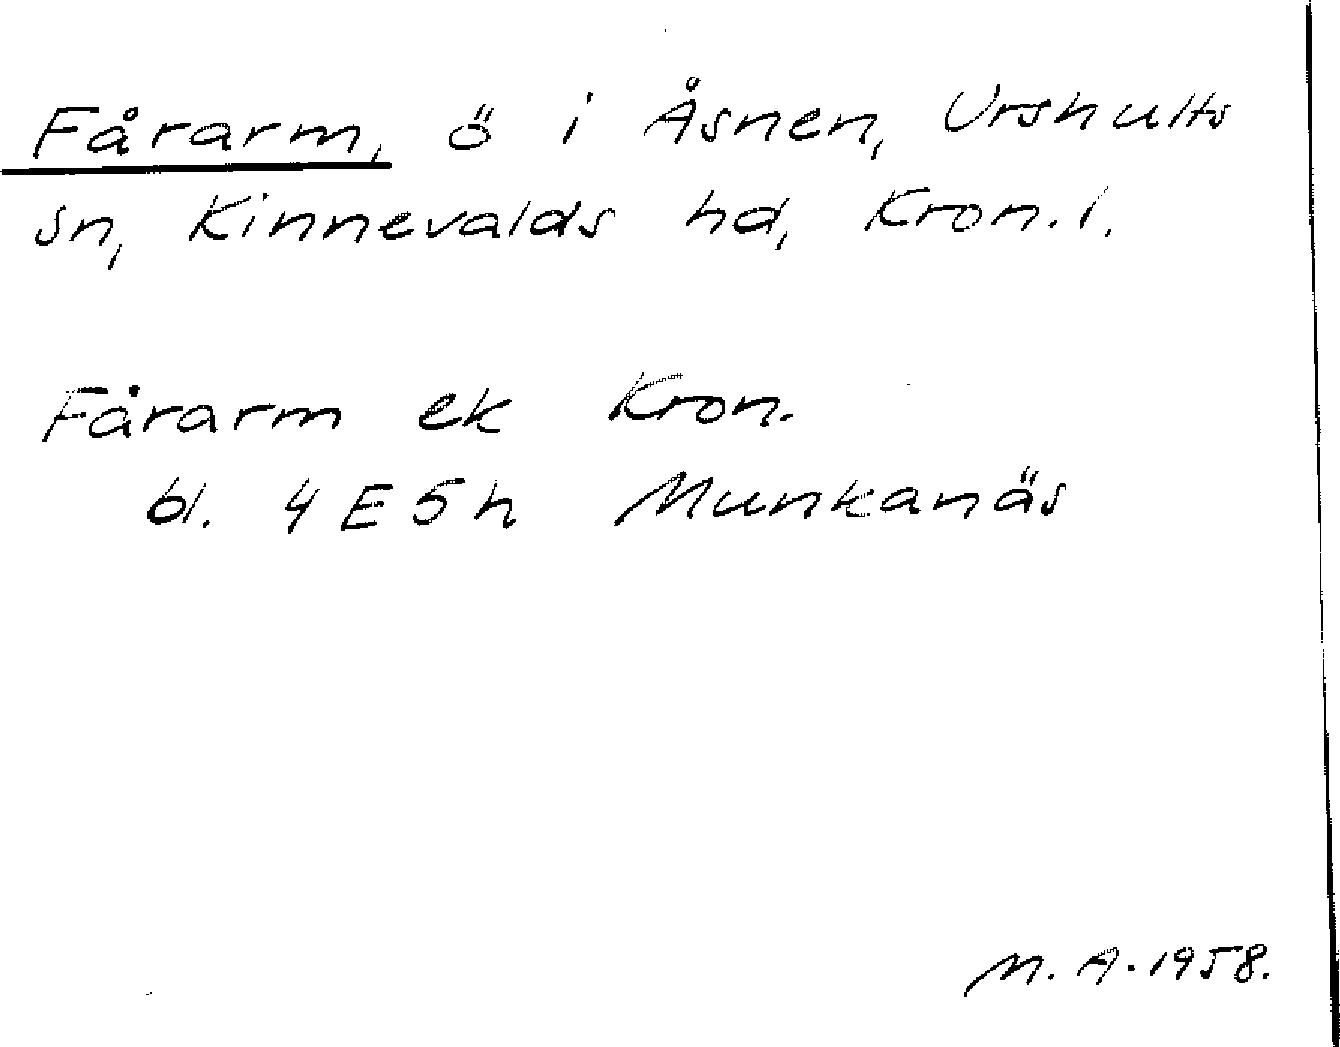 Fårarm, ö i Åsnen, Urshults
sn, Kinnevalds hd, Kron. l.
Fårarm ek Kron.
bl. 4 E 5 h Munkanäs
M. A. 1958.